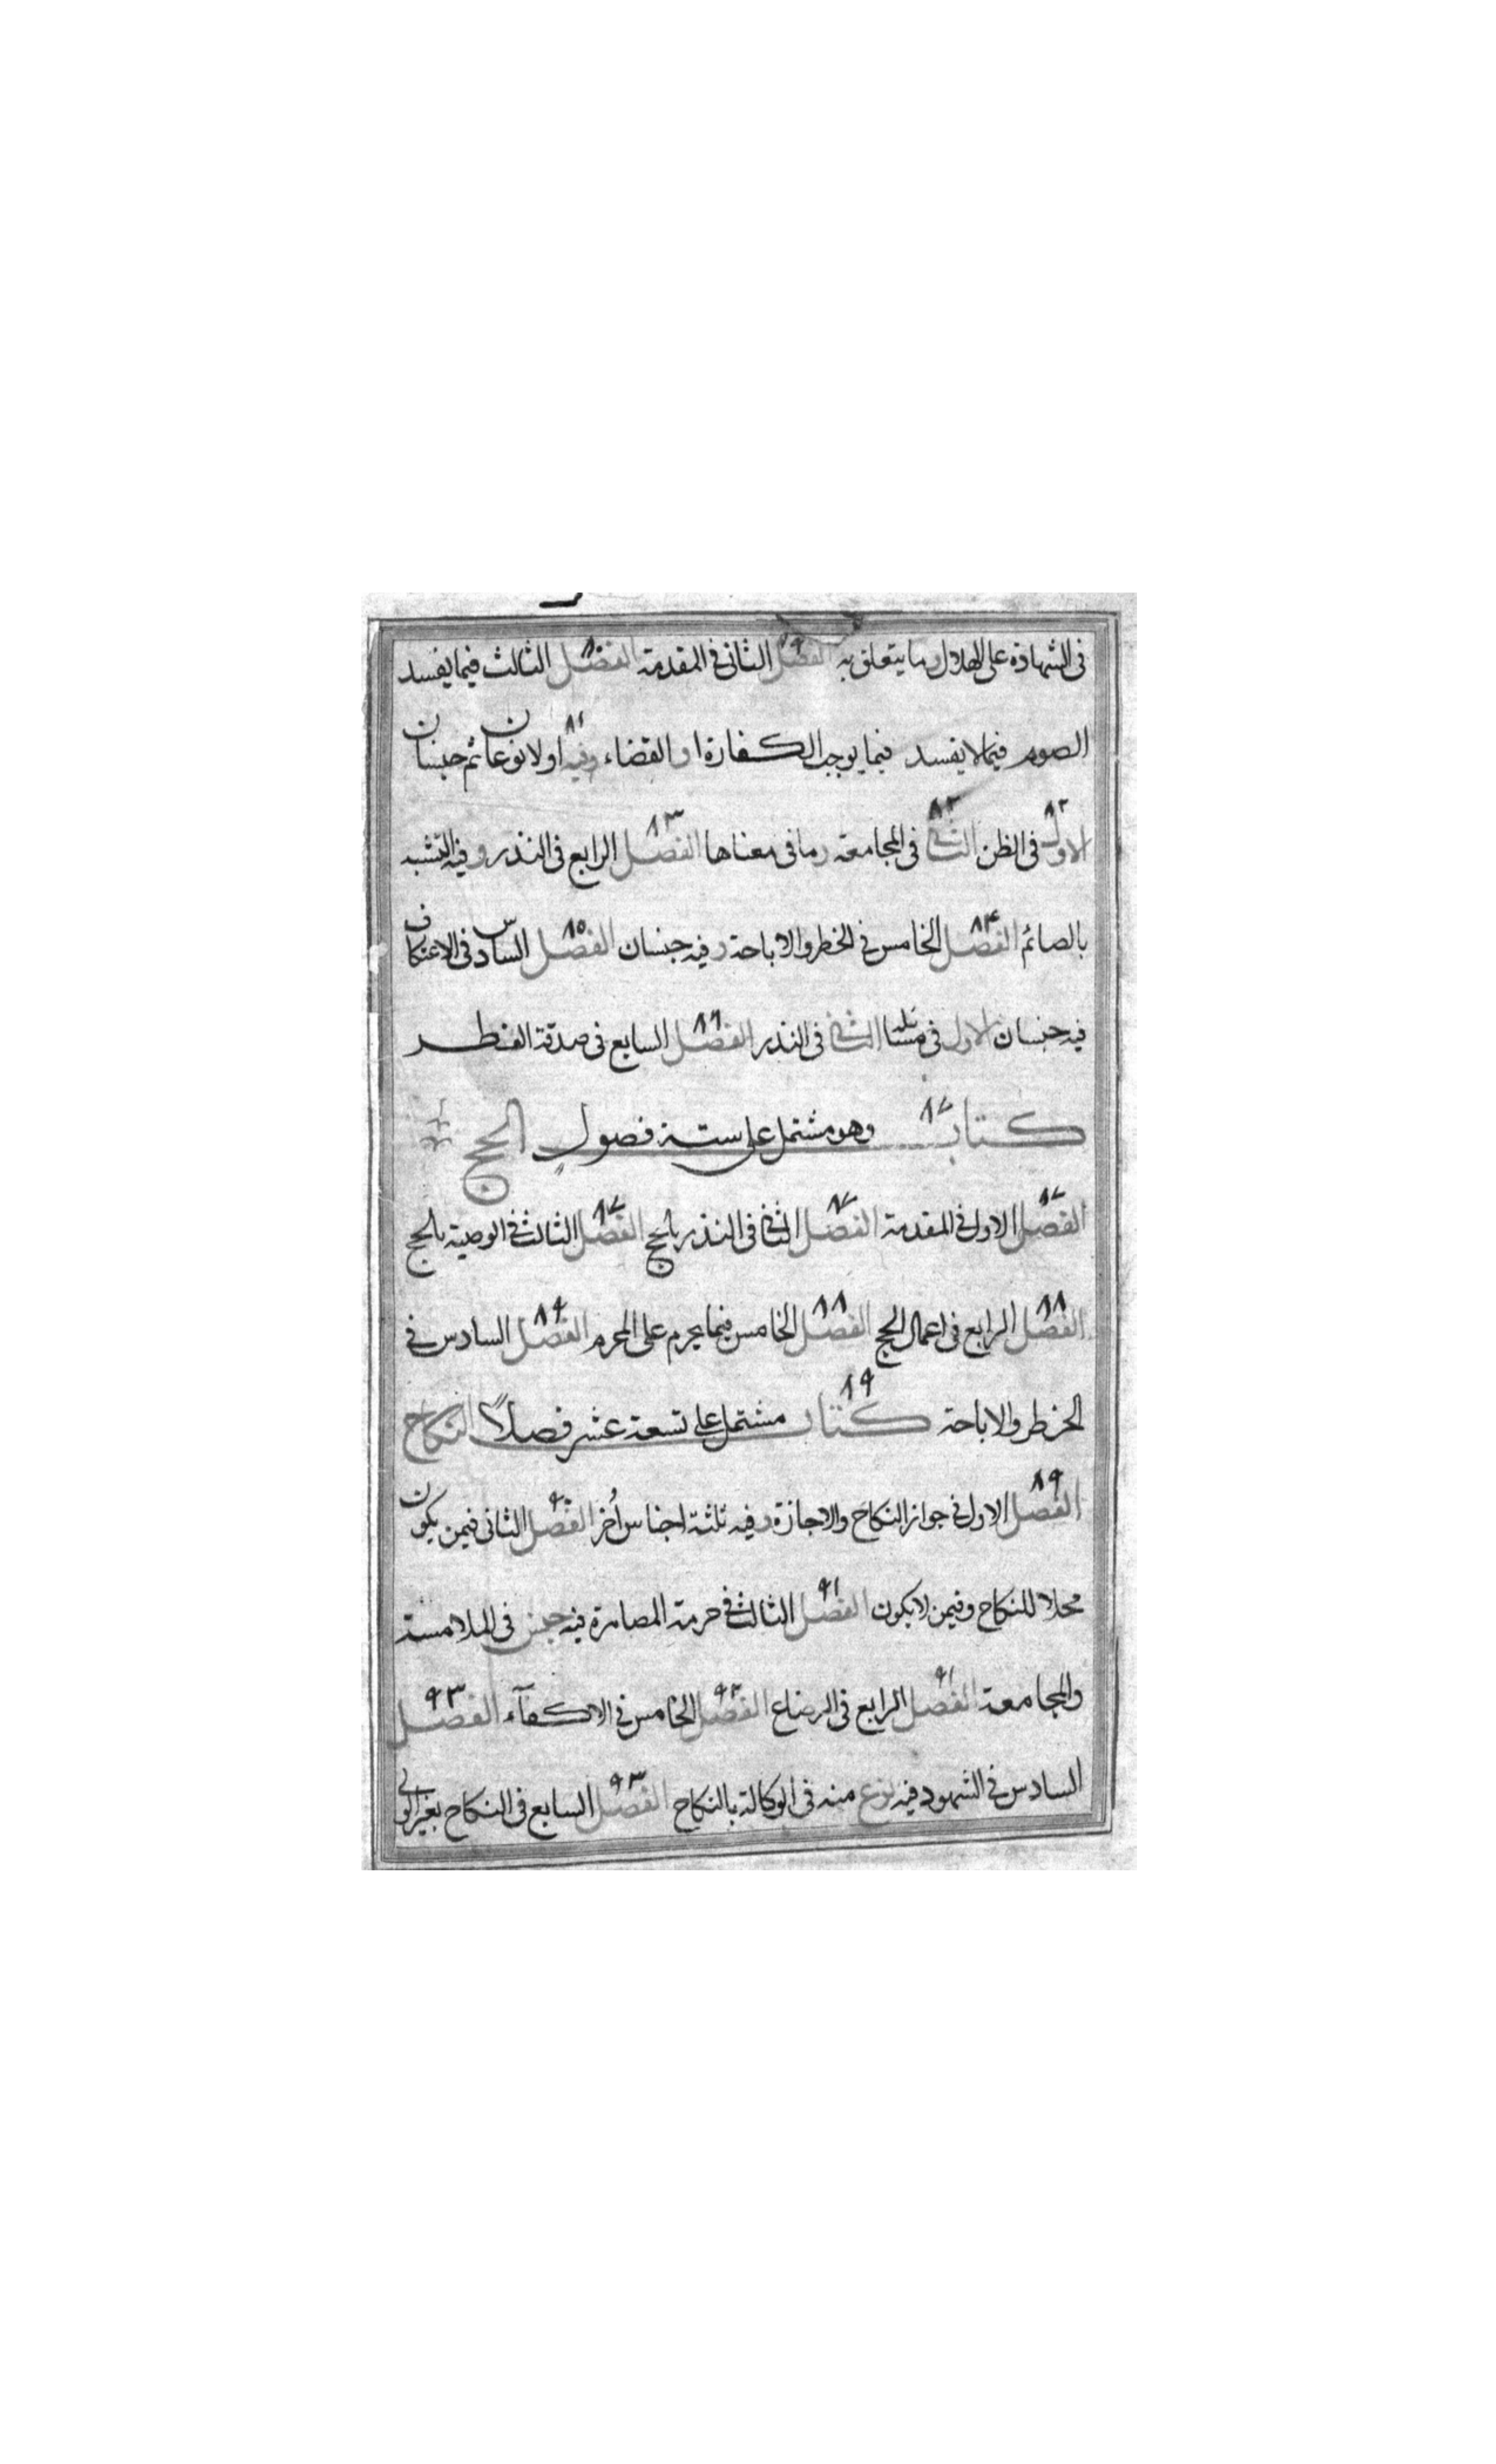 فى الشهادة على الهلال وما يتعلق به الفصل ٧٩ الثانى فى المقدمة الفصل ٨٠ الثالث فيما يفسد
الصوم فيما لا يفسد فيما يوجب الكفارة او القضاء وفيه ٨١ اولا نوعان ثم جنسان
الاول ٨٢ فى الظن الثانى ٨٢ فى المجامعة وما فى معناها الفصل ٨٣ الرابع فى النذر وفيه التشبه
بالصائم الفصل ٨۴ الخامس فى الخطر والاباحة وفيه جنسان الفصل ٨٥ السادس فى الاعتكاف
فيه جنسان الاول فى مسئلة الثانى فى النذر الفصل ٨٦ السابع فى صدقة الفطر
كتاب ٨٧ وهو مشتمل على ستة فصول الحج
الفصل ٨٧ الاول فى المقدمة الفصل ٨٧ الثانى فى النذر بالحج الفصل ٨٧ الثالث فى الوصية بالحج
الفصل ٨٨ الرابع فى اعمال الحج الفصل ٨٨ الخامس فيما يحرم على المحرم الفصل ٨٩ السادس فى
الخطر والاباحة كتاب ٨٩ مشتمل على تسعة عشر فصلاً النكاح
الفصل ٨٩ الاول فى جواز النكاح والاجازة وفيه ثلثة اجناس أخر الفصل ٩٠ الثانى فيمن يكون
محلا للنكاح وفيمن لا يكون الفصل ٩١ الثالث فى حرمة المصاهرة فيه جنس فى الملامسة
والمجامعة الفصل ٩١ الرابع فى الرضاع الفصل ٩٢ الخامس فى الاكفآء الفصل ٩٣
السادس فى الشهود فيه نوع منه فى الوكالة بالنكاح الفصل ٩٣ السابع فى النكاح بغير الولى